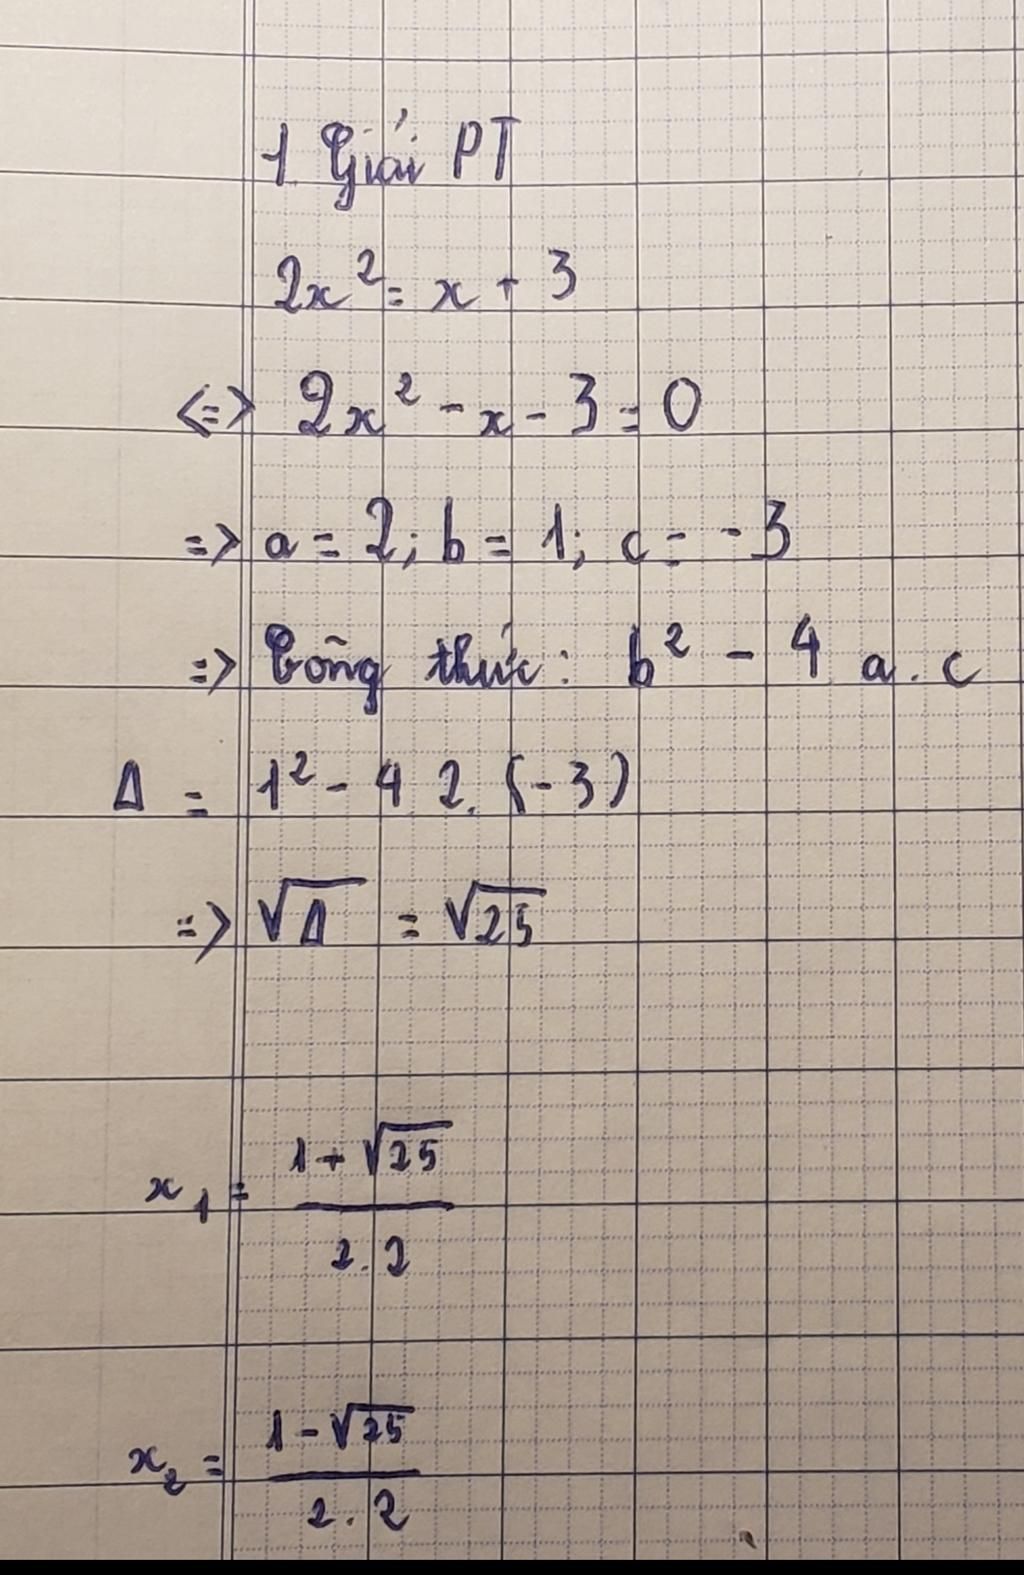 1. Giải PT
2x² = x + 3
<=> 2x² - x - 3 = 0
=> a = 2; b = 1; c = -3
=> Công thức: b² - 4 a . c
Δ = 1² - 4 2. (-3)
=> √Δ = √25
x₁ = (1 + √25) / (2 . 2)
x₂ = (1 - √25) / (2 . 2)